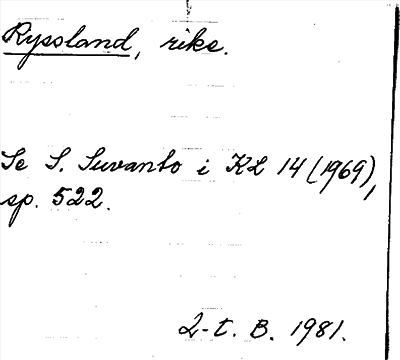 Ryssland, rike.
Se S. Suvanto i KL 14 (1969),
sp. 522.
2-t. B. 1981.